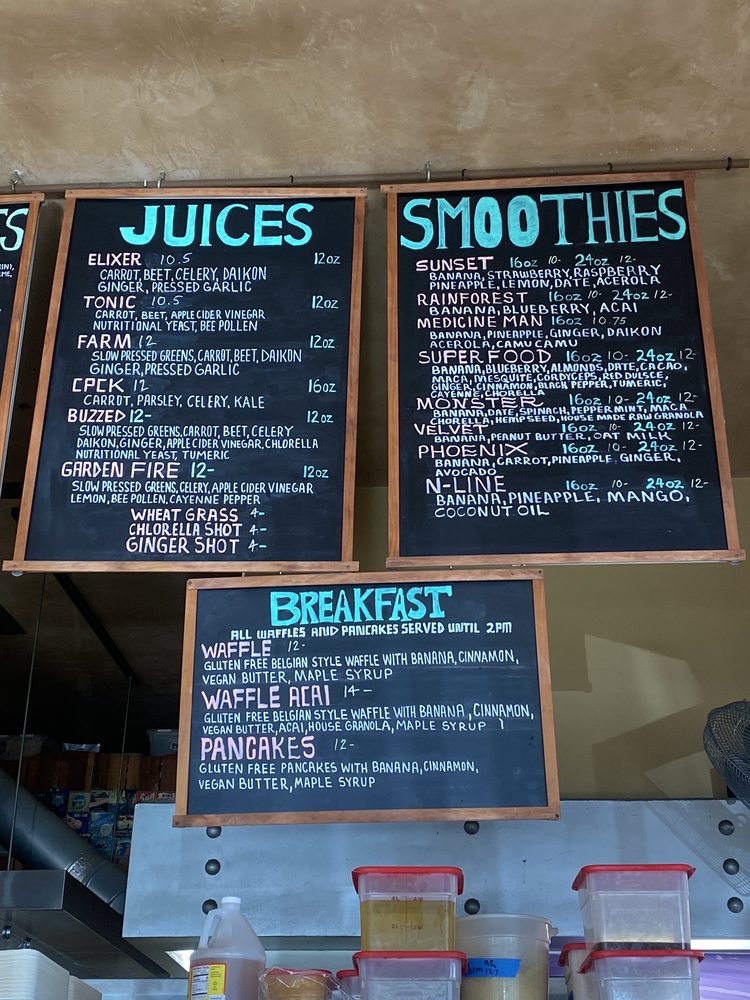 JUICES
ELIXER 10.5 12oz
CARROT, BEET, CELERY, DAIKON
GINGER, PRESSED GARLIC
TONIC 10.5 12oz
CARROT, BEET, APPLE CIDER VINEGAR
NUTRITIONAL YEAST, BEE POLLEN
FARM 12 12oz
SLOW PRESSED GREENS, CARROT, BEET, DAIKON
GINGER, PRESSED GARLIC
CPCK 12 16oz
CARROT, PARSLEY, CELERY, KALE
BUZZED 12- 12oz
SLOW PRESSED GREENS, CARROT, BEET, CELERY
DAIKON, GINGER, APPLE CIDER VINEGAR, CHLORELLA
NUTRITIONAL YEAST, TUMERIC
GARDEN FIRE 12- 12oz
SLOW PRESSED GREENS, CELERY, APPLE CIDER VINEGAR
LEMON, BEE POLLEN, CAYENNE PEPPER
WHEAT GRASS 4-
CHLORELLA SHOT 4-
GINGER SHOT 4-
SMOOTHIES
SUNSET 16oz 10- 24oz 12-
BANANA, STRAWBERRY, RASPBERRY
PINEAPPLE, LEMON, DATE, ACEROLA
RAINFOREST 16oz 10- 24oz 12-
BANANA, BLUEBERRY, ACAI
MEDICINE MAN 16oz 10.75
BANANA, PINEAPPLE, GINGER, DAIKON
ACEROLA, CAMU CAMU
SUPER FOOD 16oz 10- 24oz 12-
BANANA, BLUEBERRY, ALMONDS, DATE, CACAO,
MACA, MESQUITE, CORDYCEPS, RED DULSCE,
GINGER, CINNAMON, BLACK PEPPER, TUMERIC,
CAYENNE, CHORELLA
MONSTER 16oz 10- 24oz 12-
BANANA, DATE, SPINACH, PEPPERMINT, MACA
CHORELLA, HEMP SEED, HOUSE MADE RAW GRANOLA
VELVET 16oz 10- 24oz 12-
BANANA, PEANUT BUTTER, OAT MILK
PHOENIX 16oz 10- 24oz 12-
BANANA, CARROT, PINEAPPLE, GINGER,
AVOCADO
N-LINE 16oz 10- 24oz 12-
BANANA, PINEAPPLE, MANGO,
COCONUT OIL
BREAKFAST
ALL WAFFLES AND PANCAKES SERVED UNTIL 2PM
WAFFLE 12-
GLUTEN FREE BELGIAN STYLE WAFFLE WITH BANANA, CINNAMON,
VEGAN BUTTER, MAPLE SYRUP
WAFFLE ACAI 14-
GLUTEN FREE BELGIAN STYLE WAFFLE WITH BANANA, CINNAMON,
VEGAN BUTTER, ACAI, HOUSE GRANOLA, MAPLE SYRUP
PANCAKES 12-
GLUTEN FREE PANCAKES WITH BANANA, CINNAMON,
VEGAN BUTTER, MAPLE SYRUP